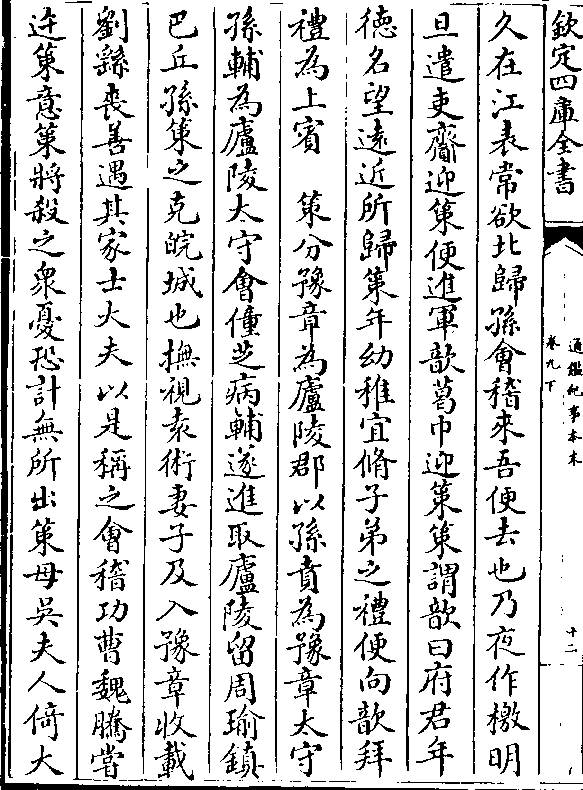 欽定四庫全書
通鑑紀事本末
卷九下
十二
久在江表常欲北歸孫會稽來吾便去也乃夜作檄明
旦遣吏齎迎策便進軍歆葛巾迎策策謂歆曰府君年
徳名望遠近所歸策年幼稚宜脩子弟之禮便向歆拜
禮為上賓　策分豫章為廬陵郡以孫賁為豫章太守
孫輔為廬陵太守會僮芝病輔遂進取廬陵留周瑜鎮
巴丘孫策之克皖城也撫視袁術妻子及入豫章收載
劉繇喪善遇其家士大夫以是稱之會稽功曹魏騰嘗
迕策意策將殺之衆憂恐計無所出策母吳夫人倚大